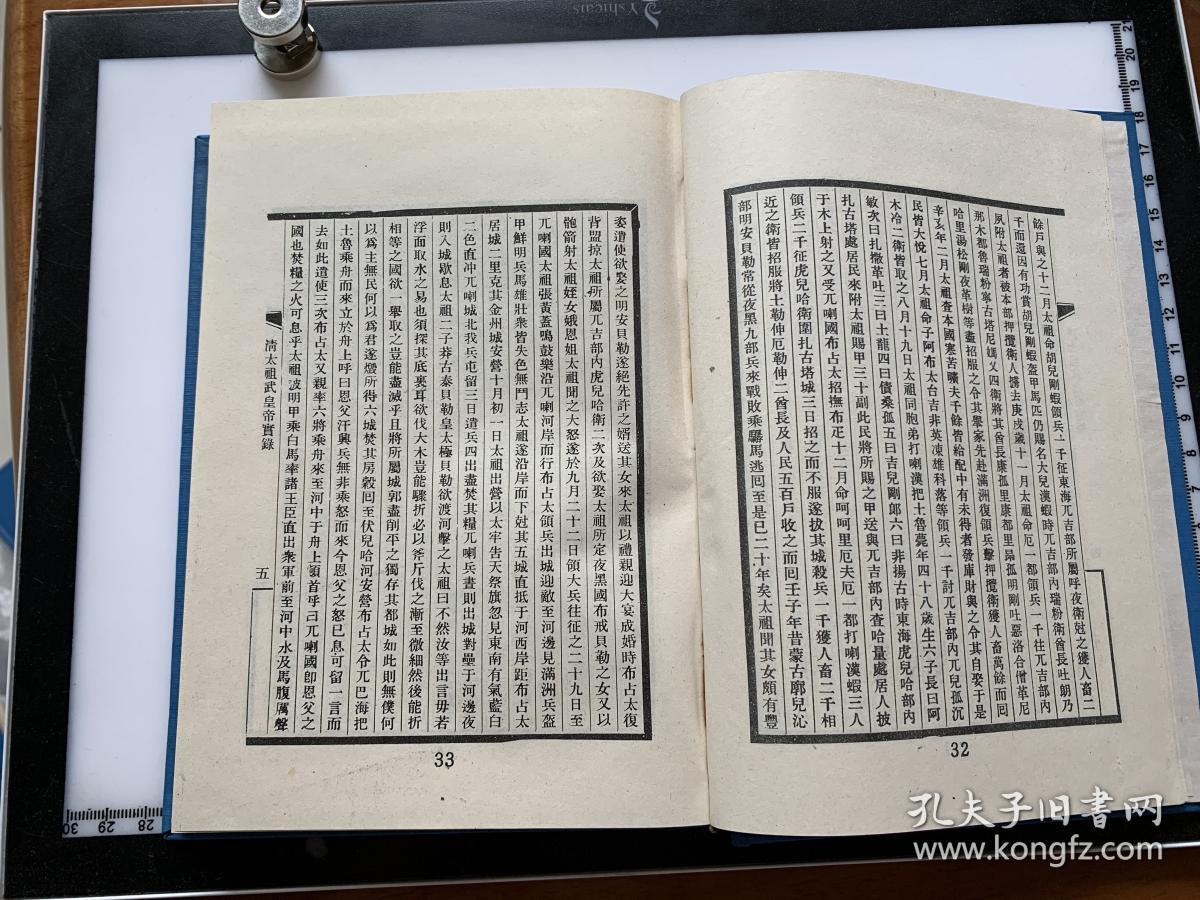 餘戶與之十二月太祖命胡兒剛蝦領兵一千征東海兀吉部所屬呼夜衛尅之獲人畜二
千而還因有功賞胡兒剛蝦盔甲馬匹仍賜名大兒漢蝦時兀吉部內瑞粉衛酋長吐朗乃
夙附太祖者被本部押攬衛人擄去庚戌歲十一月太祖命厄一都領兵一千往兀吉部內
那木都魯瑞粉寧古塔尼媽乂四衛將其酋長康孤里康都里昂孤明剛吐惡洛合僧革尼
哈里湯松剛夜革樹等盡招服之令其舉家先赴滿洲復領兵擊押攬衛獲人畜萬餘而囘
辛亥年二月太祖查本國寒苦曠夫千餘皆給配中有未得者發庫財與之令其自娶于是
民皆大悅七月太祖命子阿布太台吉非英凍雄科落等領兵一千討兀吉部內兀兒孤沉
木冷二衛皆取之八月十九日太祖同胞弟打喇漢把土魯薨年四十八歲生六子長曰阿
敏次曰扎撒革吐三曰土龍四曰債桑孤五曰吉兒剛郎六曰非揚古時東海虎兒哈部內
扎古塔處居民來附太祖賜甲三十副此民將所賜之甲送與兀吉部內查哈量處居人披
于木上射之又受兀喇國布占太招撫布疋十二月命呵呵里厄夫厄一都打喇漢蝦三人
領兵二千征虎兒哈衛圍扎古塔城三日招之而不服遂拔其城殺兵一千獲人畜二千相
近之衛皆招服將土勒伸厄勒伸二酋長及人民五百戶收之而囘壬子年昔蒙古廓兒沁
部明安貝勒常從夜黑九部兵來戰敗乘驏馬逃囘至是已二十年矣太祖聞其女頗有豐
32
姿遣使欲娶之明安貝勒遂絕先許之婿送其女來太祖以禮親迎大宴成婚時布占太復
背盟掠太祖所屬兀吉部內虎兒哈衛二次及欲娶太祖所定夜黑國布戒貝勒之女又以
骲箭射太祖姪女娥恩姐太祖聞之大怒遂於九月二十二日領大兵往征之二十九日至
兀喇國太祖張黃蓋鳴鼓樂沿兀喇河岸而行布占太領兵出城迎敵至河邊見滿洲兵盔
甲鮮明兵馬雄壯衆皆失色無鬥志太祖遂沿岸而下尅其五城直抵于河西岸距布占太
居城二里克其金州城安營十月初一日太祖出營以太牢告天祭旗忽見東南有氣藍白
二色直冲兀喇城北我兵屯留三日遣兵四出盡焚其糧兀喇兵晝則出城對壘于河邊夜
則入城歇息太祖二子莽古泰貝勒皇太極貝勒欲渡河擊之太祖曰不然汝等出言毋若
浮面取水之易也須探其底裏耳欲伐大木豈能驟折必以斧斤伐之漸至微細然後能折
相等之國欲一舉取之豈能盡滅乎且將所屬城郭盡削平之獨存其都城如此則無僕何
以爲主無民何以爲君遂燬所得六城焚其房穀囘至伏兒哈河安營布占太令兀巴海把
土魯乘舟而來立於舟上呼曰恩父汗興兵無非乘怒而來今恩父之怒已息可留一言而
去如此遣使三次布占太又親率六將乘舟來至河中于舟上頓首呼曰兀喇國卽恩父之
國也焚糧之火可息乎太祖冹明甲乘白馬率諸王臣直出衆軍前至河中水及馬腹厲聲
淸太祖武皇帝實錄
五
33
孔夫子旧书网
www.kongfz.com